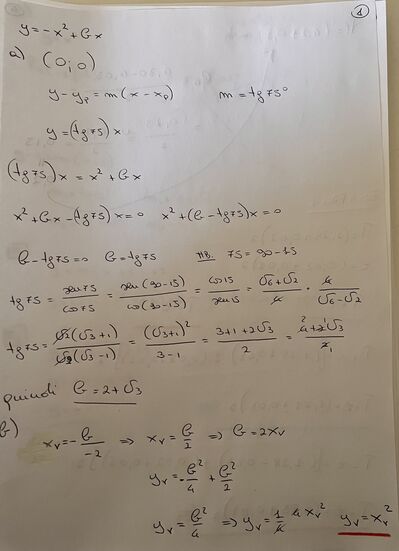 1
y = -x² + bx
a) (0;0)
y - yₚ = m(x - xₚ) m = tg75°
y = (tg75)x
(tg75)x = x² + bx
x² + bx - (tg75)x = 0 x² + (b - tg75)x = 0
b - tg75 = 0 b = tg75 NB. 75 = 90 - 15
tg75 = sen75/cos75 = sen(90-15)/cos(90-15) = cos15/sen15 = (√6+√2)/4 · 4/(√6-√2)
tg75 = √2(√3+1)/√2(√3-1) = (√3+1)²/(3-1) = (3+1+2√3)/2 = (4+2√3)/2
quindi b = 2+√3
b) xᵥ = -b/-2 ⇒ xᵥ = b/2 ⇒ b = 2xᵥ
yᵥ = -b²/4 + b²/2
yᵥ = b²/4 ⇒ yᵥ = 1/4 4xᵥ² yᵥ = xᵥ²